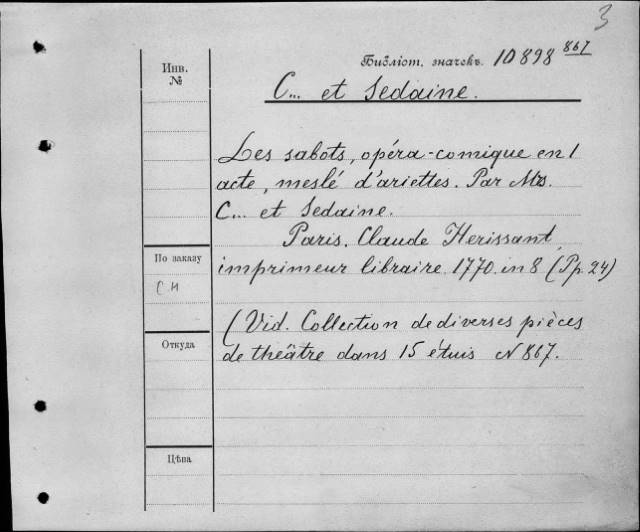 3
Библіот. значекъ. 10898 867
Инв.
№
C... et Sedaine.
Les sabots, opéra-comique en 1
acte, meslé d'ariettes. Par Mrs.
C... et Sedaine.
Paris. Claude Herissant,
imprimeur libraire. 1770. in 8 (Pp. 24)
По заказу
СН
(Vid. Collection de diverses pièces
de théâtre dans 15 étuis N 867.
Откуда
Цѣна